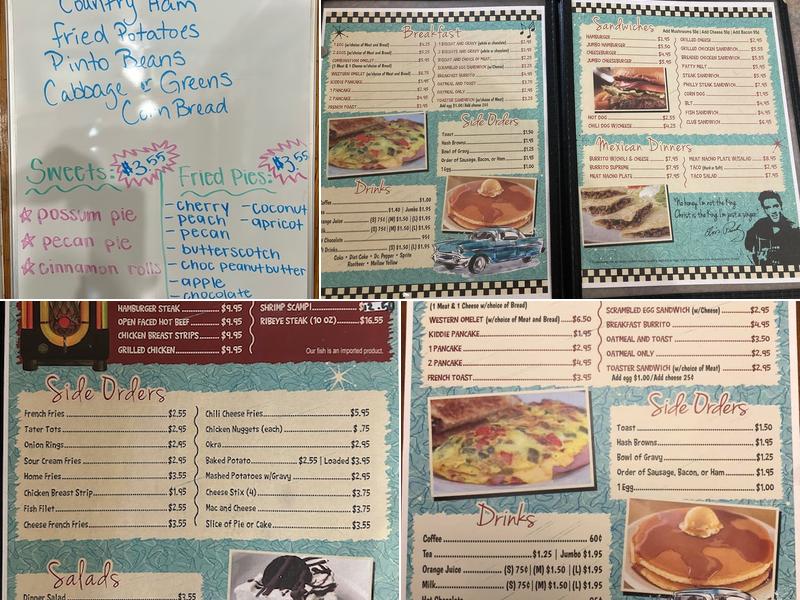 Country Ham
Fried Potatoes
Pinto Beans
Cabbage or Greens
Corn Bread
Sweets: $3.55
possum pie
pecan pie
cinnamon rolls
Fried Pies: $3.55
- cherry - coconut
- peach - apricot
- pecan
- butterscotch
- choc peanutbutter
- apple
- chocolate
Breakfast
KIDDIE PANCAKE
1 PANCAKE
2 PANCAKE
FRENCH TOAST
BREAKFAST BURRITO
OATMEAL AND TOAST
OATMEAL ONLY
TOASTER SANDWICH (w/choice of Meat)
Add egg $1.00/Add cheese 25¢
Side Orders
Toast $1.50
Hash Browns $1.95
Bowl of Gravy $1.25
Order of Sausage, Bacon, or Ham $1.95
1 Egg $1.00
Drinks
$1.00
$1.40 | Jumbo $1.95
Orange Juice (S) 75¢ | (M) $1.50 | (L) $1.95
(S) 75¢ | (M) $1.50 | (L) $1.95
Chocolate 95¢
(S) $1.50 | (L) $1.95
Coke • Diet Coke • Dr. Pepper • Sprite
Rootbeer • Mellow Yellow
Sandwiches
Add Mushrooms 50¢ | Add Cheese 50¢ | Add Bacon 95¢
HAMBURGER
JUMBO HAMBURGER
CHEESEBURGER
JUMBO CHEESEBURGER
HOT DOG
CHILI DOG W/CHEESE
GRILLED CHEESE
GRILLED CHICKEN SANDWICH
BREADED CHICKEN SANDWICH
PATTY MELT
STEAK SANDWICH
PHILLY STEAK SANDWICH
CORN DOG
BLT
FISH SANDWICH
CLUB SANDWICH
Mexican Dinners
BURRITO W/CHILI & CHEESE $7.95
BURRITO SUPREME $7.95
MEAT NACHO PLATE
MEAT NACHO PLATE W/SALAD $8.95
TACO (Hard or Soft) $2.95
TACO SALAD $7.95
"No honey, I'm not the King.
Christ is the King. I'm just a singer."
Elvis Presley
HAMBURGER STEAK $9.95
OPEN FACED HOT BEEF $9.95
CHICKEN BREAST STRIPS $9.95
GRILLED CHICKEN $9.95
SHRIMP SCAMPI
RIBEYE STEAK (10 OZ) $16.55
Our fish is an imported product.
Side Orders
French Fries $2.55
Tater Tots $2.95
Onion Rings $2.95
Sour Cream Fries $2.95
Home Fries $3.55
Chicken Breast Strip $1.95
Fish Filet $2.55
Cheese French Fries $3.55
Chili Cheese Fries $5.95
Chicken Nuggets (each) $ .75
Okra $2.95
Baked Potato $2.55 | Loaded $3.95
Mashed Potatoes w/Gravy $2.95
Cheese Stix (4) $3.75
Mac and Cheese $3.75
Slice of Pie or Cake $3.55
Salads
Dinner Salad $3.55
(1 Meat & 1 Cheese w/choice of Bread)
WESTERN OMELET (w/choice of Meat and Bread) $6.50
KIDDIE PANCAKE $1.95
1 PANCAKE $2.95
2 PANCAKE $4.95
FRENCH TOAST $3.95
SCRAMBLED EGG SANDWICH (w/Cheese) $2.95
BREAKFAST BURRITO $4.95
OATMEAL AND TOAST $3.50
OATMEAL ONLY $2.95
TOASTER SANDWICH (w/choice of Meat) $2.95
Add egg $1.00/Add cheese 25¢
Side Orders
Toast $1.50
Hash Browns $1.95
Bowl of Gravy $1.25
Order of Sausage, Bacon, or Ham $1.95
1 Egg $1.00
Drinks
Coffee 60¢
Tea $1.25 | Jumbo $1.95
Orange Juice (S) 75¢ | (M) $1.50 | (L) $1.95
Milk (S) 75¢ | (M) $1.50 | (L) $1.95
Hot Chocolate 95¢